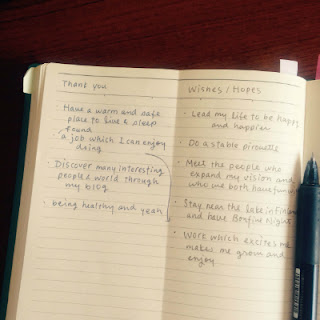 Thank you
Have a warm and safe
place to live & sleep
found
a job which I can enjoy
doing
Discover many interesting
people & world through
my blog.
being healthy and yeah
Wishes / Hopes
Lead my life to be happy
and happier
Do a stable pirouette
Meet the people who
expand my vision and
who we both have fun w/
Stay near the lake in Finland
and have Bonfire Night
Work which excites me
makes me grow and
enjoy